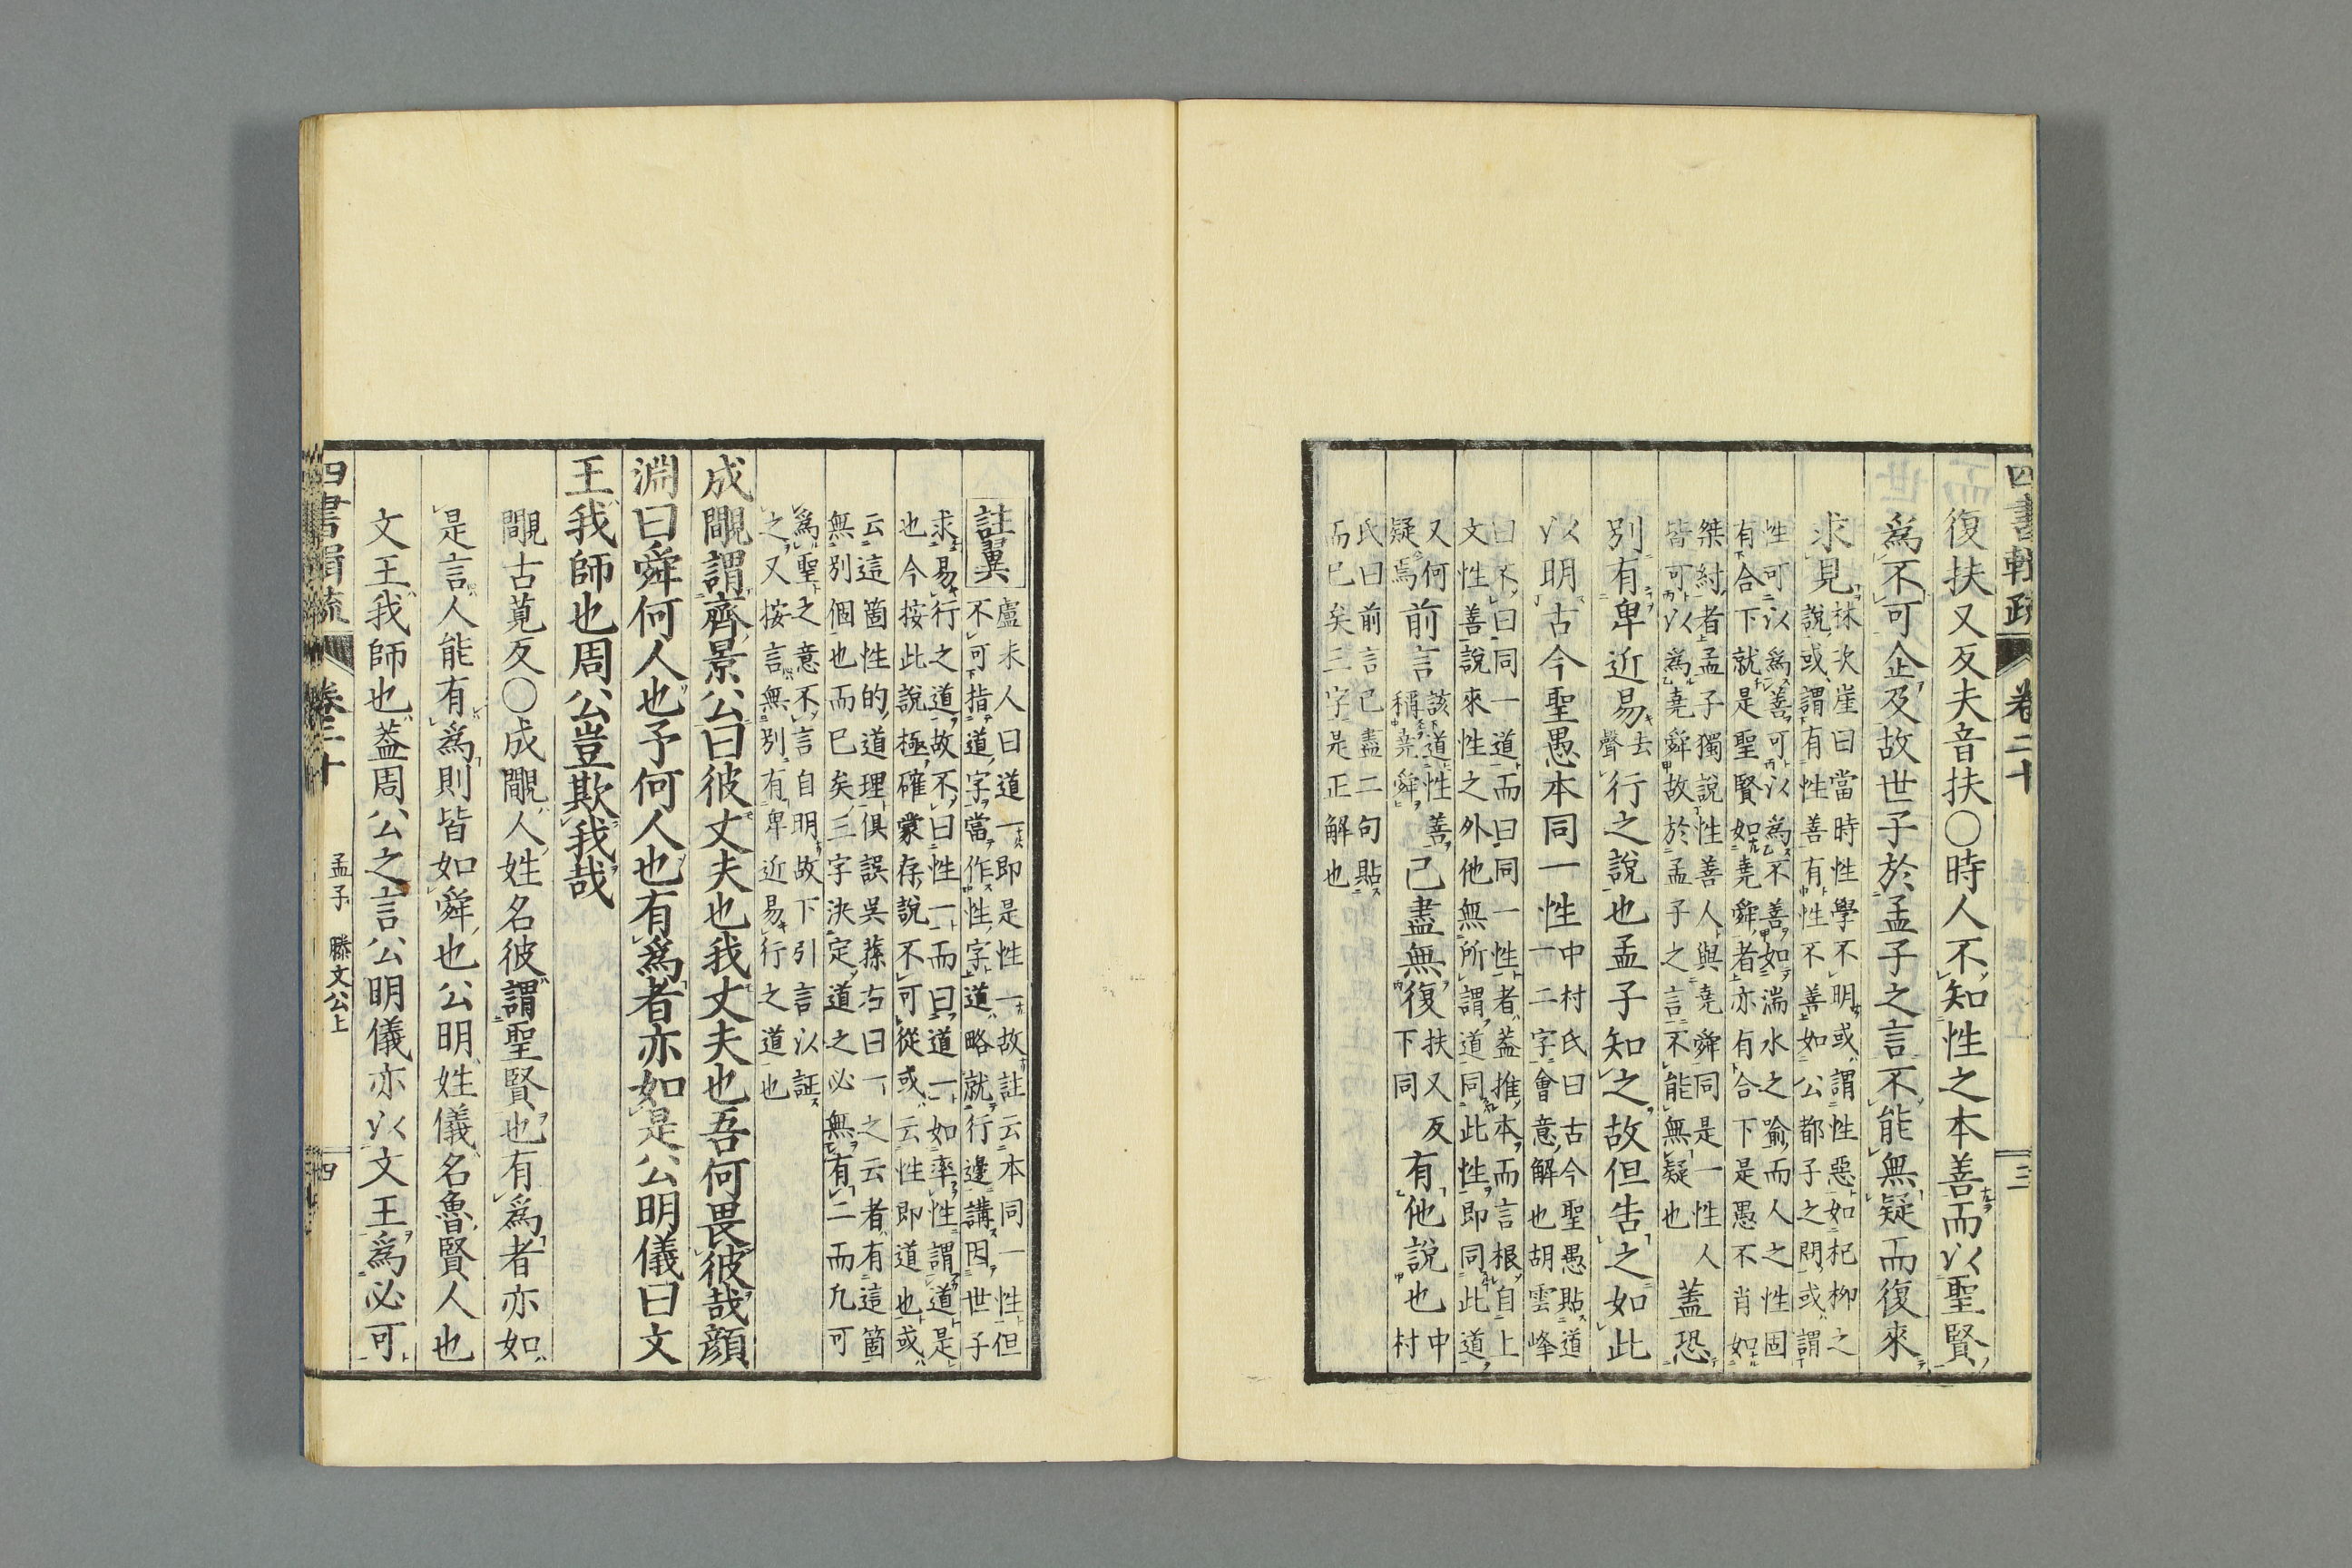 四書輯疏 卷二十 三
復扶又反夫音扶〇時人不知性之本善而以聖賢
爲不可企及故世子於孟子之言不能無疑而復來
求見
林次崖曰當時性學不明或謂性惡如杞柳之
說或謂有性善有性不善如公都子之問或謂
性可以爲善可以爲不善如湍水之喩而人之性固
有合下就是聖賢如堯舜者亦有合下是愚不肖如
桀紂者孟子獨說性善人與堯舜同是一性人
皆可以爲堯舜故於孟子之言不能無疑也
蓋恐
別有卑近易去聲行之說也孟子知之故但告之如此
以明古今聖愚本同一性
中村氏曰古今聖愚貼道
一二字會意解也胡雲峰
曰不曰同一道而曰同一性者蓋推本而言根自上
文性善說來性之外他無所謂道同此性即同此道
又何
疑焉
前言
該道性善
稱堯舜
已盡無復
扶又反
下同
有他說也
中
村
氏曰前言已盡二句貼
而已矣三字是正解也
註翼
盧未人曰道一即是性一故註云本同一性但
不可指道字當作性字道略就行邊講因世子
求易行之道故不曰性一而曰道一如率性謂道是
也今按此說極確蒙存說不可從或云性即道也或
云這箇性的道理俱誤吳蓀右曰一之云者有這箇
無別個也而已矣三字決定道之必無有二而凢可
爲聖之意不言自明故下引言以証
之又按言無別有卑近易行之道也
成覵謂齊景公曰彼丈夫也我丈夫也吾何畏彼哉顔
淵曰舜何人也予何人也有爲者亦如是公明儀曰文
王我師也周公豈欺我哉
覵古莧反〇成覵人姓名彼謂聖賢也有爲者亦如
是言人能有爲則皆如舜也公明姓儀名魯賢人也
文王我師也蓋周公之言公明儀亦以文王爲必可
四書輯疏 卷二十 孟子 滕文公上 四